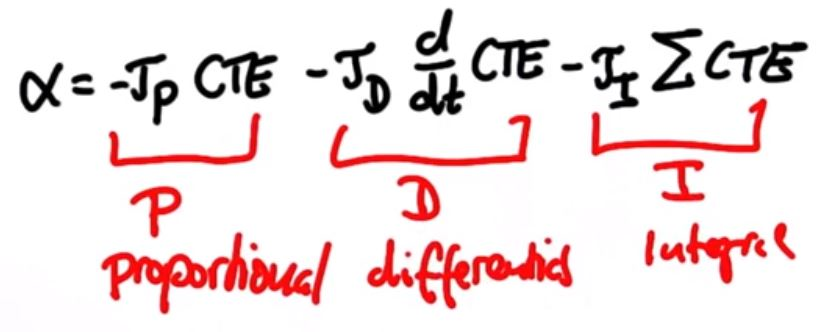 α = -J_P CTE - J_D d/dt CTE - J_I Σ CTE
P D I
proportional differential integral